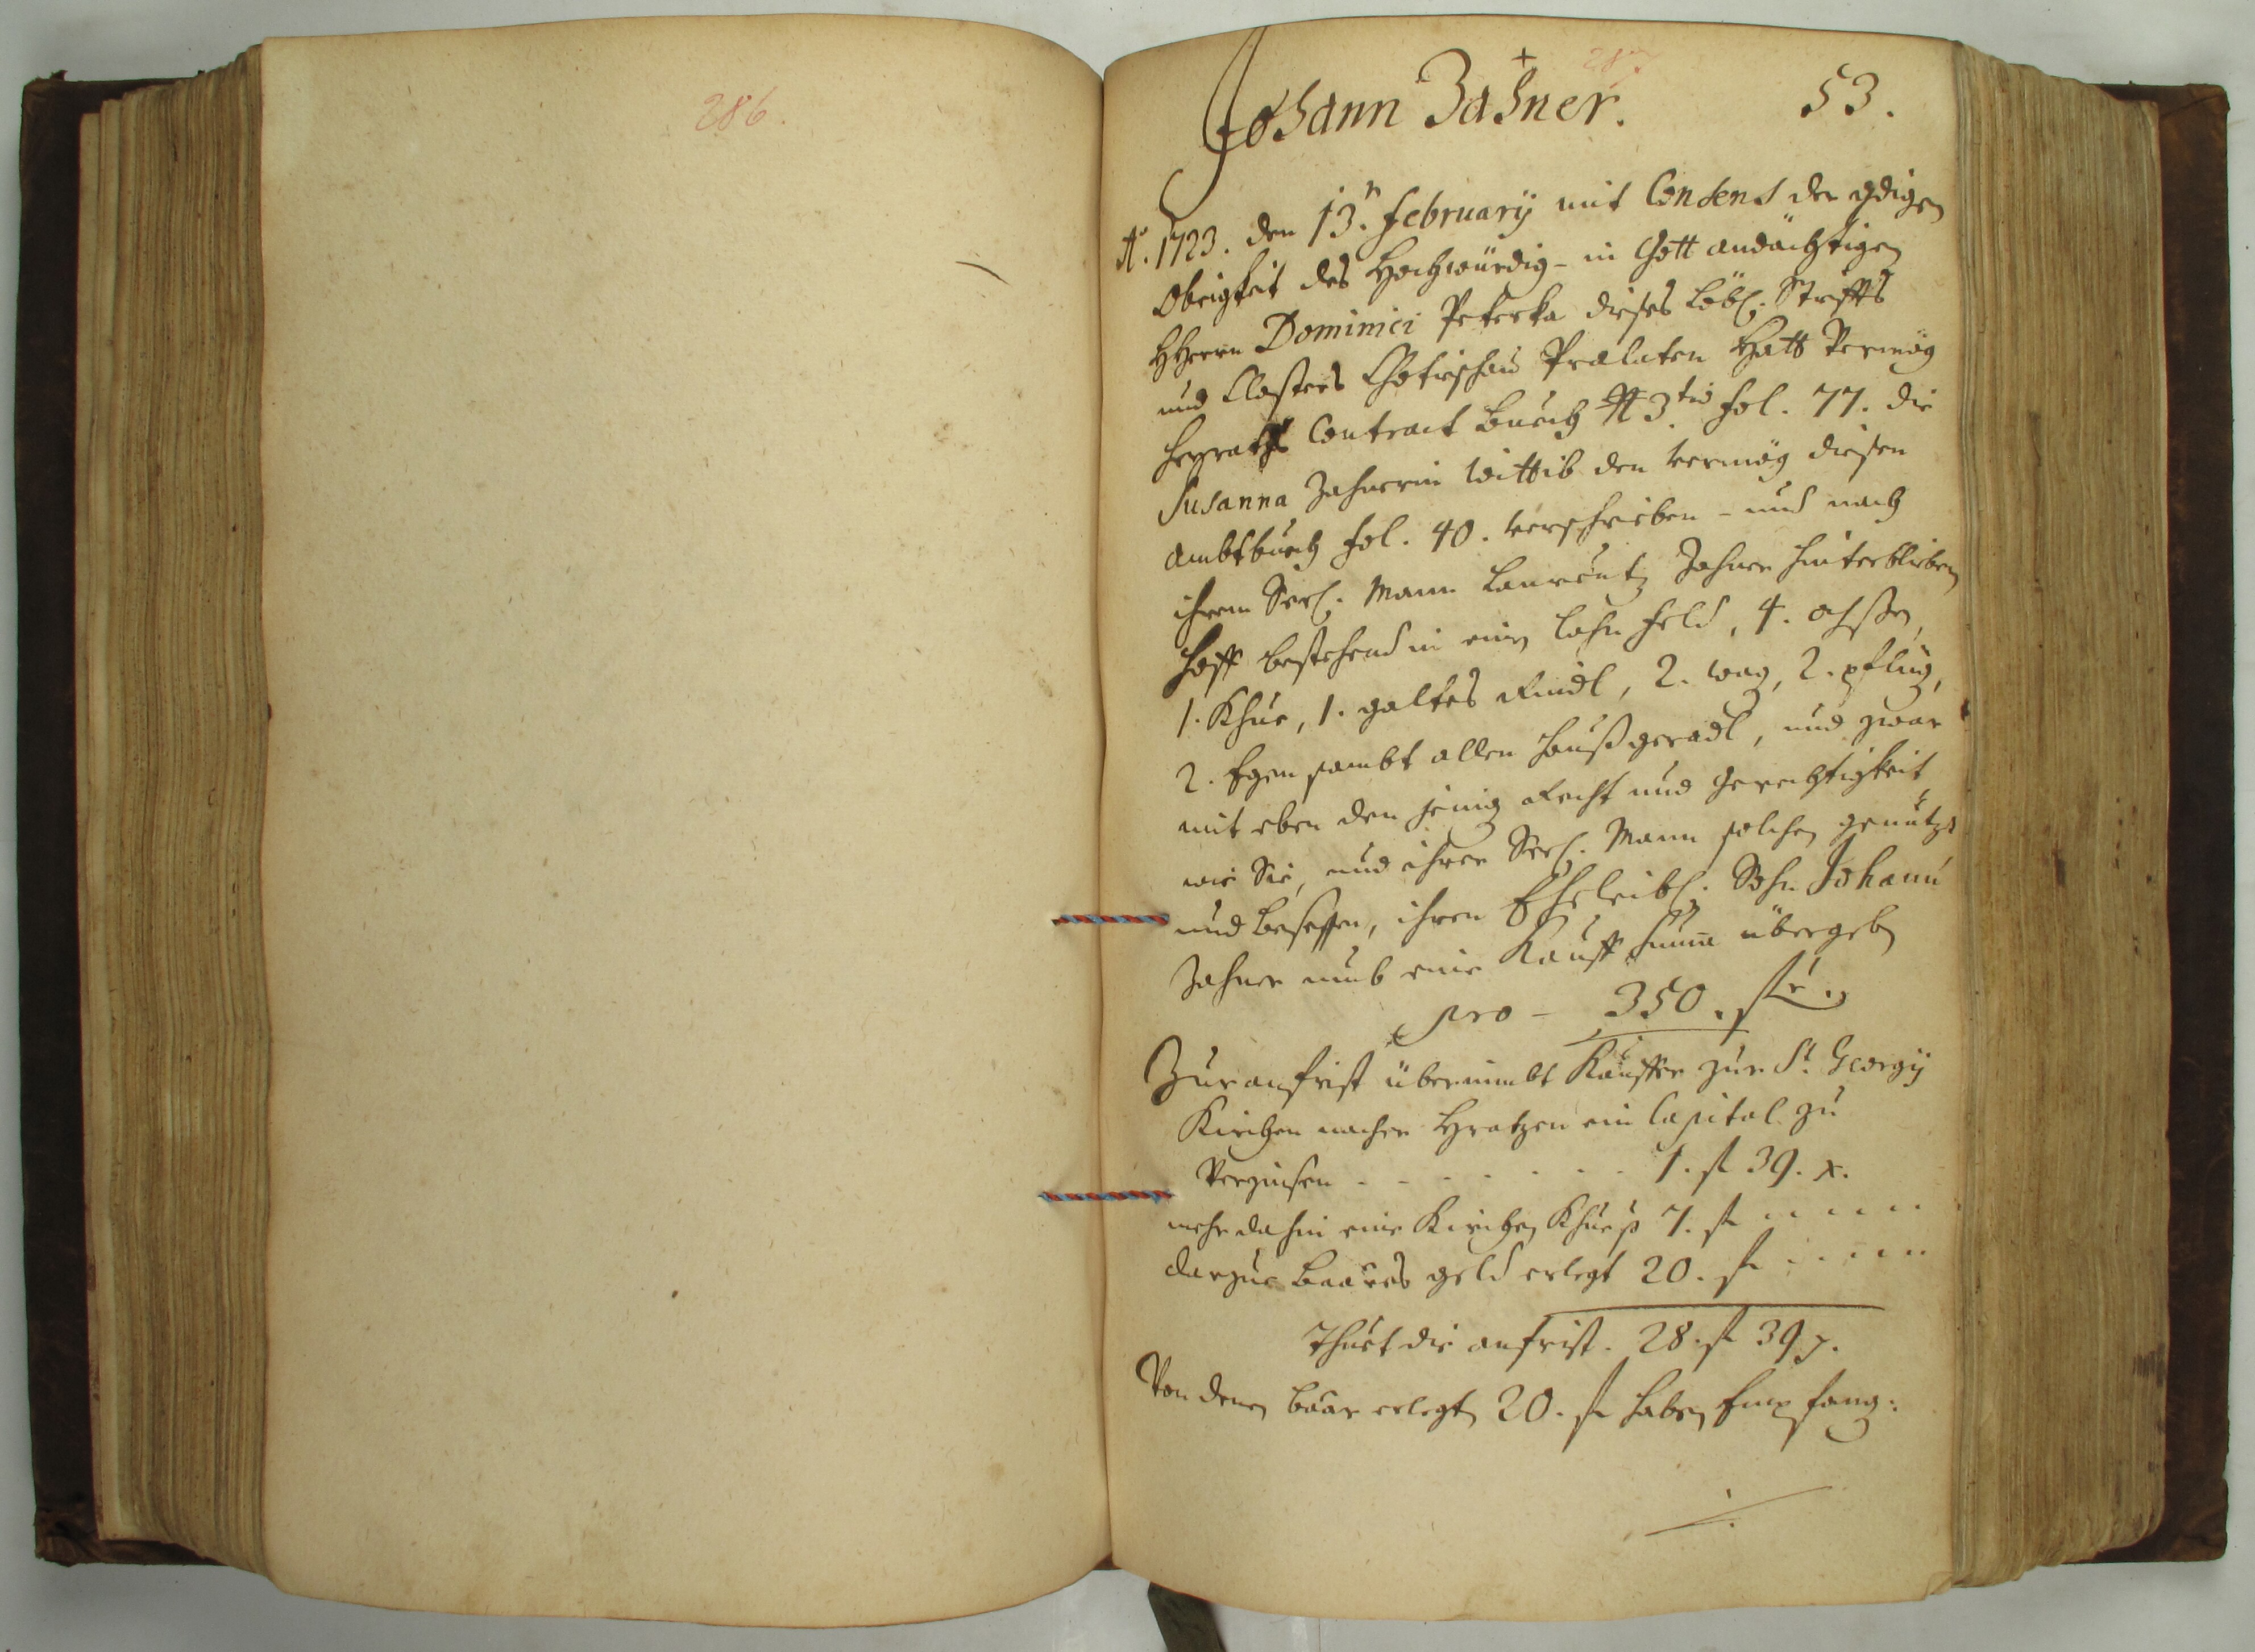 286.
287
53.
Johann Zahner.
Aō. 1723. den 13.n February mit Consens der gdigen
Obrigkeit des Hochwürdig- in Gott andächtigen
HHerrn Dominici Peterka dieses Löbl. Stiffts
und Closters Chotieschau Prælaten Hatt Vermög
Heyraths Contract buech A 3tio fol. 77. die
Susanna Zahnerin Wittib den vermög diesen
ambtbuech fol. 40. verschrieben - und nach
ihrem Seel. Mann Laurentz Zahner hinterblieben
Hoff bestehend in einen Lahn feld, 4. ochsen,
1. Khue, 1. galtes Rindl, 2. wag, 2. pflug,
2. Egen sambt allen haußgeradl, und zwar
mit eben den jenig Recht und Gerechtigkeit
wie Sie, und ihrer Seel. Mann solchen genutzt
und besessen, ihren Eheleibl. Sohn Johann
Zahner umb eine Kauff Suma übergeben
pro - 350. fl
Zur anfrist übernimbt Kauffer zur St. Georgy
Kirchen nacher Hratzen ein Capital zu
Verzinsen - - - - - - 1. fl 39. x.
mehr dahin eine Kirchen Khue p 7. fl
darzue baares geld erlegt 20. fl
Thuet die anfrist. 28. fl 39 x.
Von denen baar erlegten 20. fl haben Empfang: